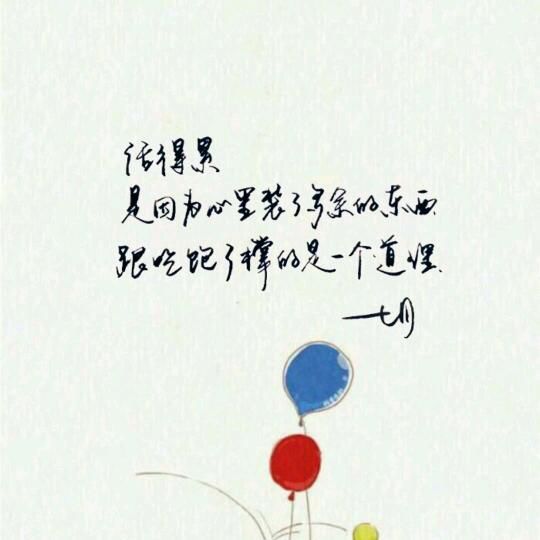 活得累
是因为心里装了多余的东西
跟吃饱了撑的是一个道理
一七月